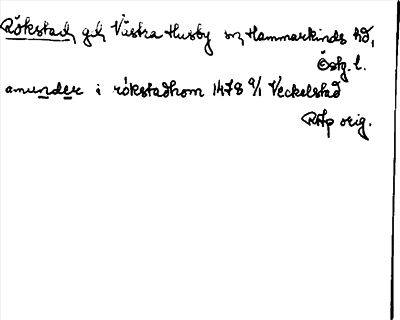 Rökstad, gd, Västra Husby sn, Hammarkinds hd,
Östg. l.
amunder i rökstadhom 1478 9/1 Veckelstad
RAp orig.